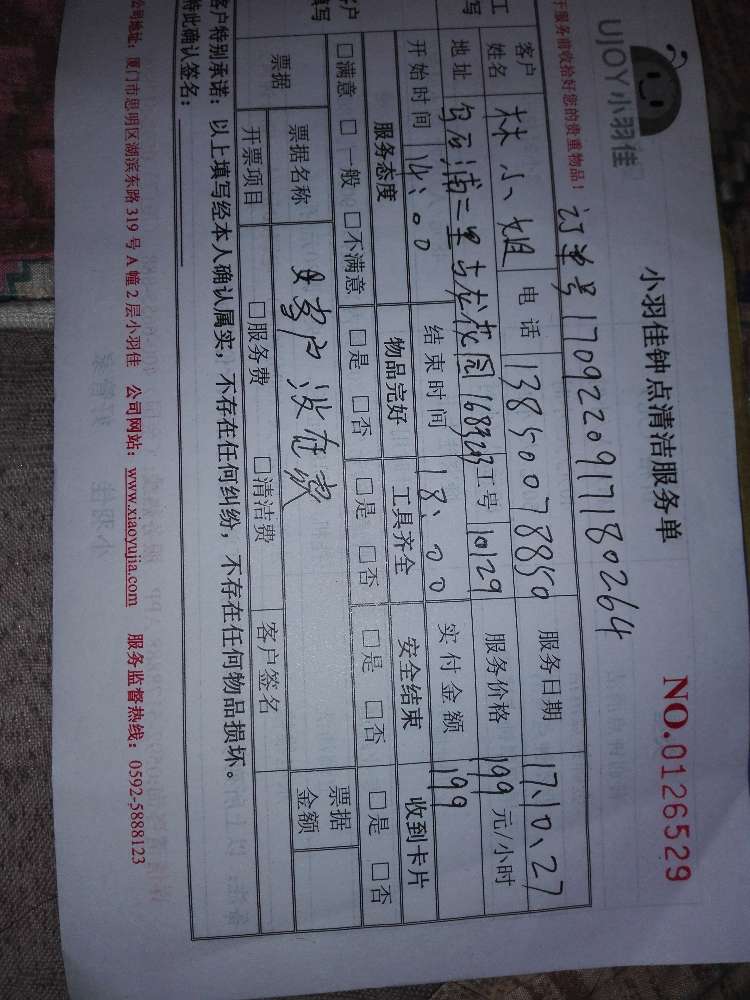 UJOY小羽佳
小羽佳钟点清洁服务单
NO.0126529
于服务前收拾好您的贵重物品！
订单号17092209171180264
客户姓名 林小姐 电话 13850078850 服务日期 17、10、27
地址 乌石浦二里古龙花园168 203 工号 10129 服务价格 199元/小时
开始时间 14:00 结束时间 18:00 实付金额 199
服务态度 物品完好 工具齐全 安全结束 收到卡片
□满意 □一般 □不满意 □是 □否 □是 □否 □是 □否 □是 □否
票据 票据名称 客户没在家 票据金额
开票项目 □服务费 □清洁费 客户签名
客户特别承诺：以上填写经本人确认属实，不存在任何纠纷，不存在任何物品损坏。
特此确认签名：
公司地址：厦门市思明区湖滨东路319号A幢2层小羽佳 公司网站：www.xiaoyujia.com 服务监督热线：0592-5888123